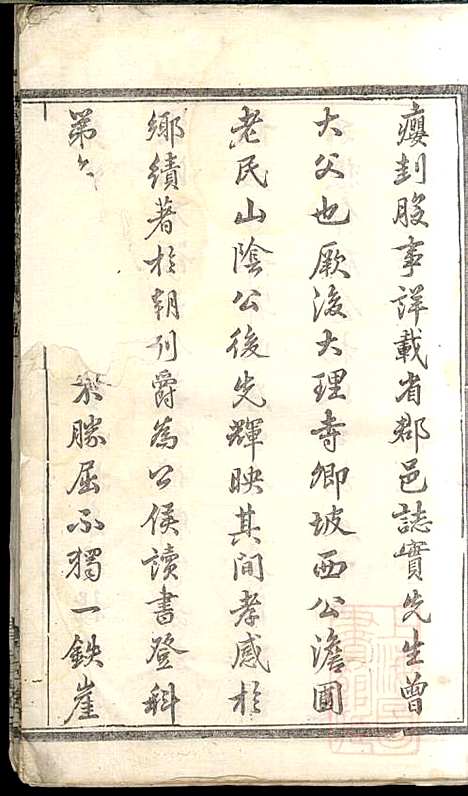 瘻刲股事詳載省郡邑誌實先生曾
大父也厥後大理寺卿坡西公澹園
老民山陰公後先輝映其間孝感於
鄉績著於朝列爵為公侯讀書登科
第 不勝屈不獨一鉄崖